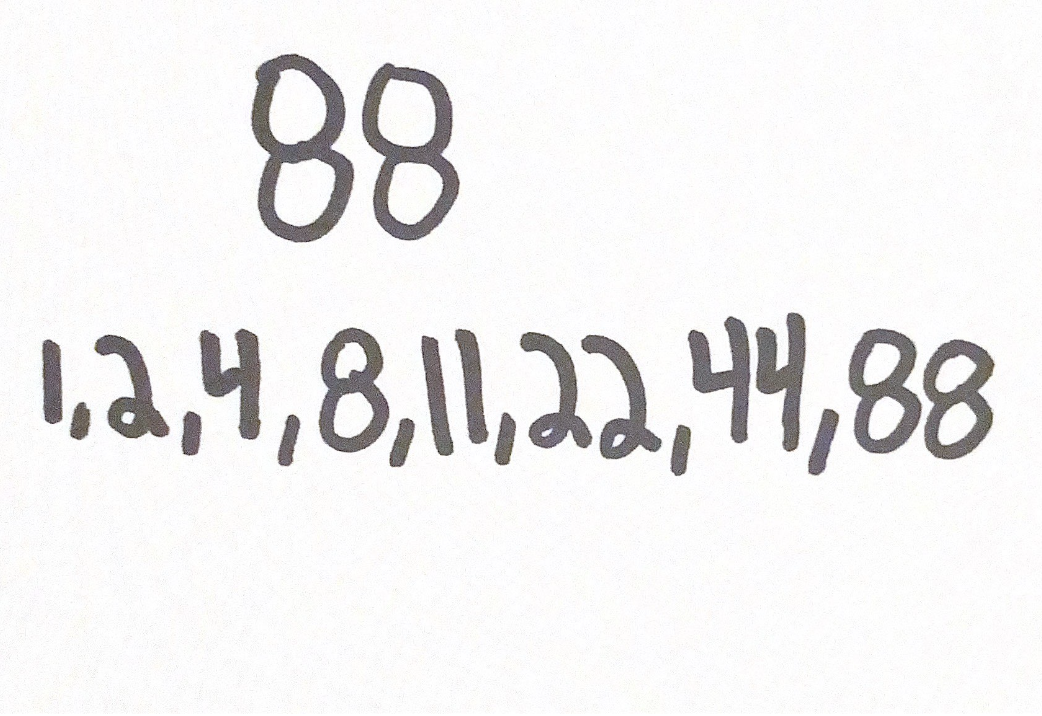 88
1,2,4,8,11,22,44,88